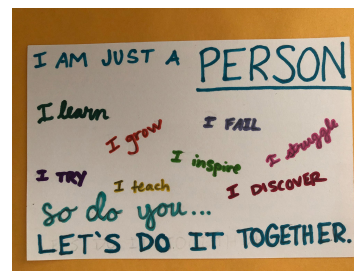 I AM JUST A PERSON
I learn
I grow
I FAIL
I struggle
I inspire
I TRY
I teach
I DISCOVER
so do you...
LET'S DO IT TOGETHER.